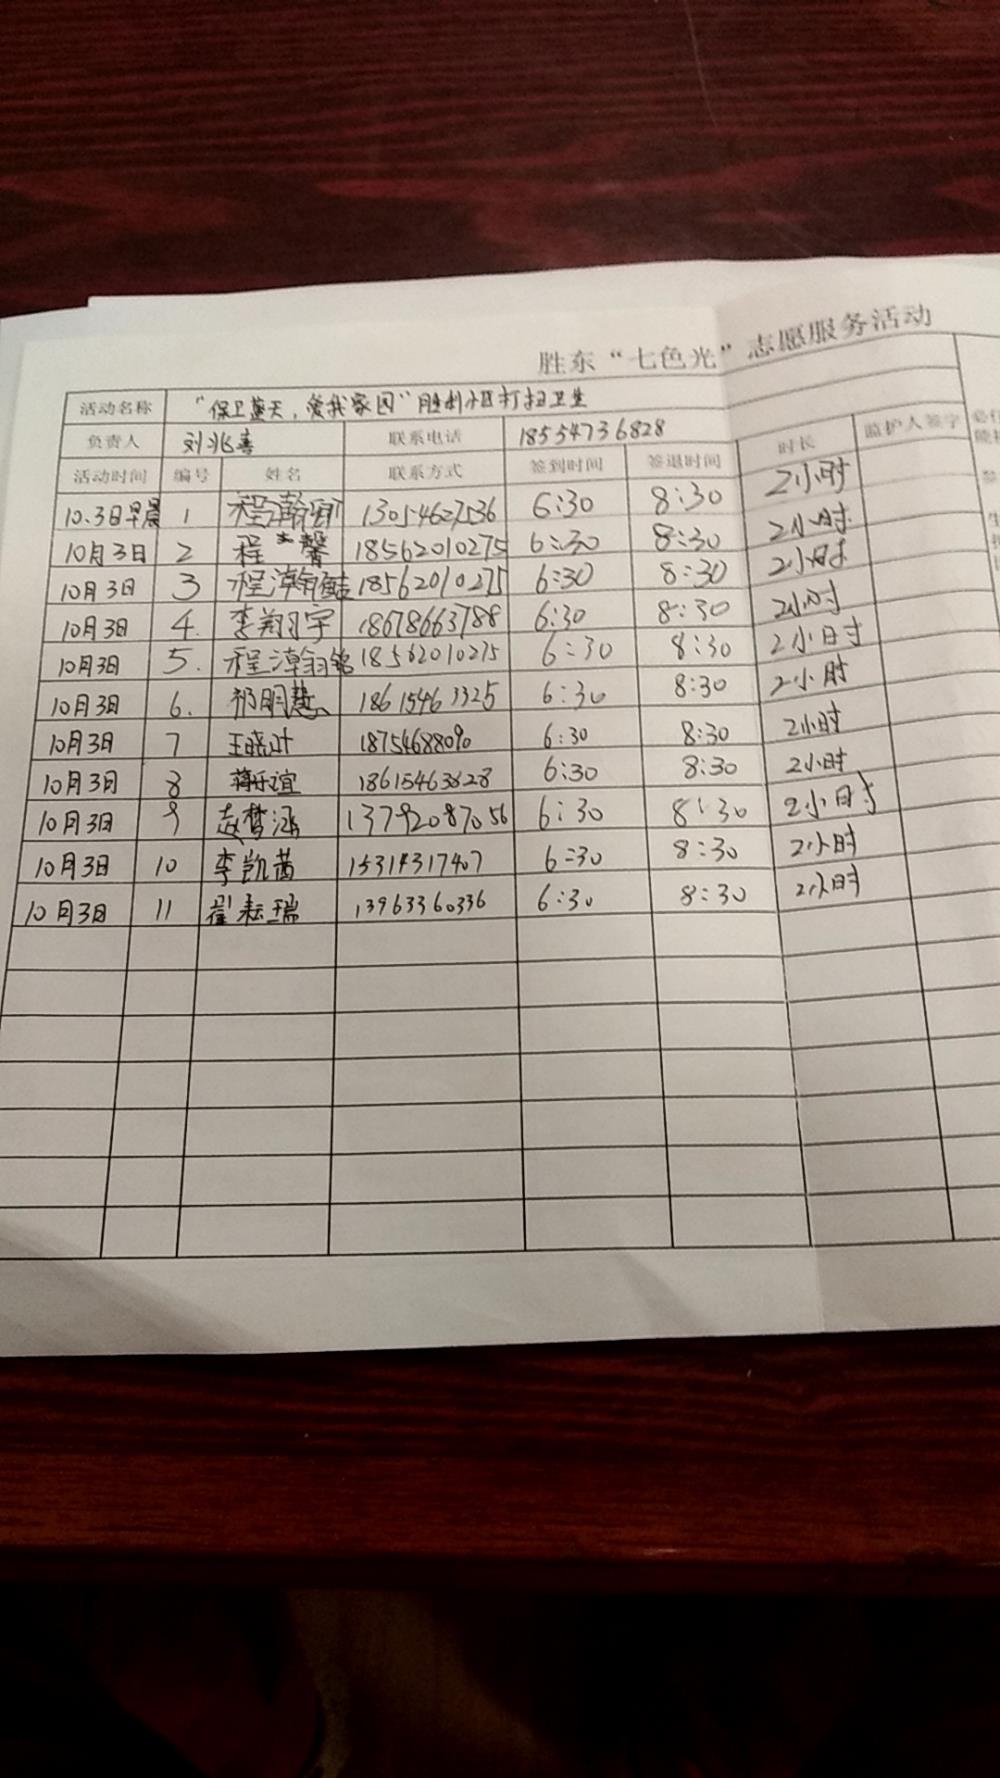 胜东“七色光”志愿服务活动
活动名称 “保卫蓝天，爱我家园”胜利小区打扫卫生
负责人 刘兆喜 联系电话 18554736828
活动时间 编号 姓名 联系方式 签到时间 签退时间 时长 监护人签字
10.3日早晨 1 程瀚 13054627536 6:30 8:30 2小时
10月3日 2 程 馨 18562010275 6:30 8:30 2小时
10月3日 3 程瀚 18562010275 6:30 8:30 2小时
10月3日 4. 李翔宇 18678663788 6:30 8:30 2小时
10月3日 5. 程瀚铭 18562010275 6:30 8:30 2小时
10月3日 6. 祁明慧 18615463325 6:30 8:30 2小时
10月3日 7 王晓叶 18754688090 6:30 8:30 2小时
10月3日 8 蒋乐谊 18615463628 6:30 8:30 2小时
10月3日 9 赵梦涵 13792087056 6:30 8:30 2小时
10月3日 10 李凯茜 15314317407 6:30 8:30 2小时
10月3日 11 崔耘瑞 13963360336 6:30 8:30 2小时